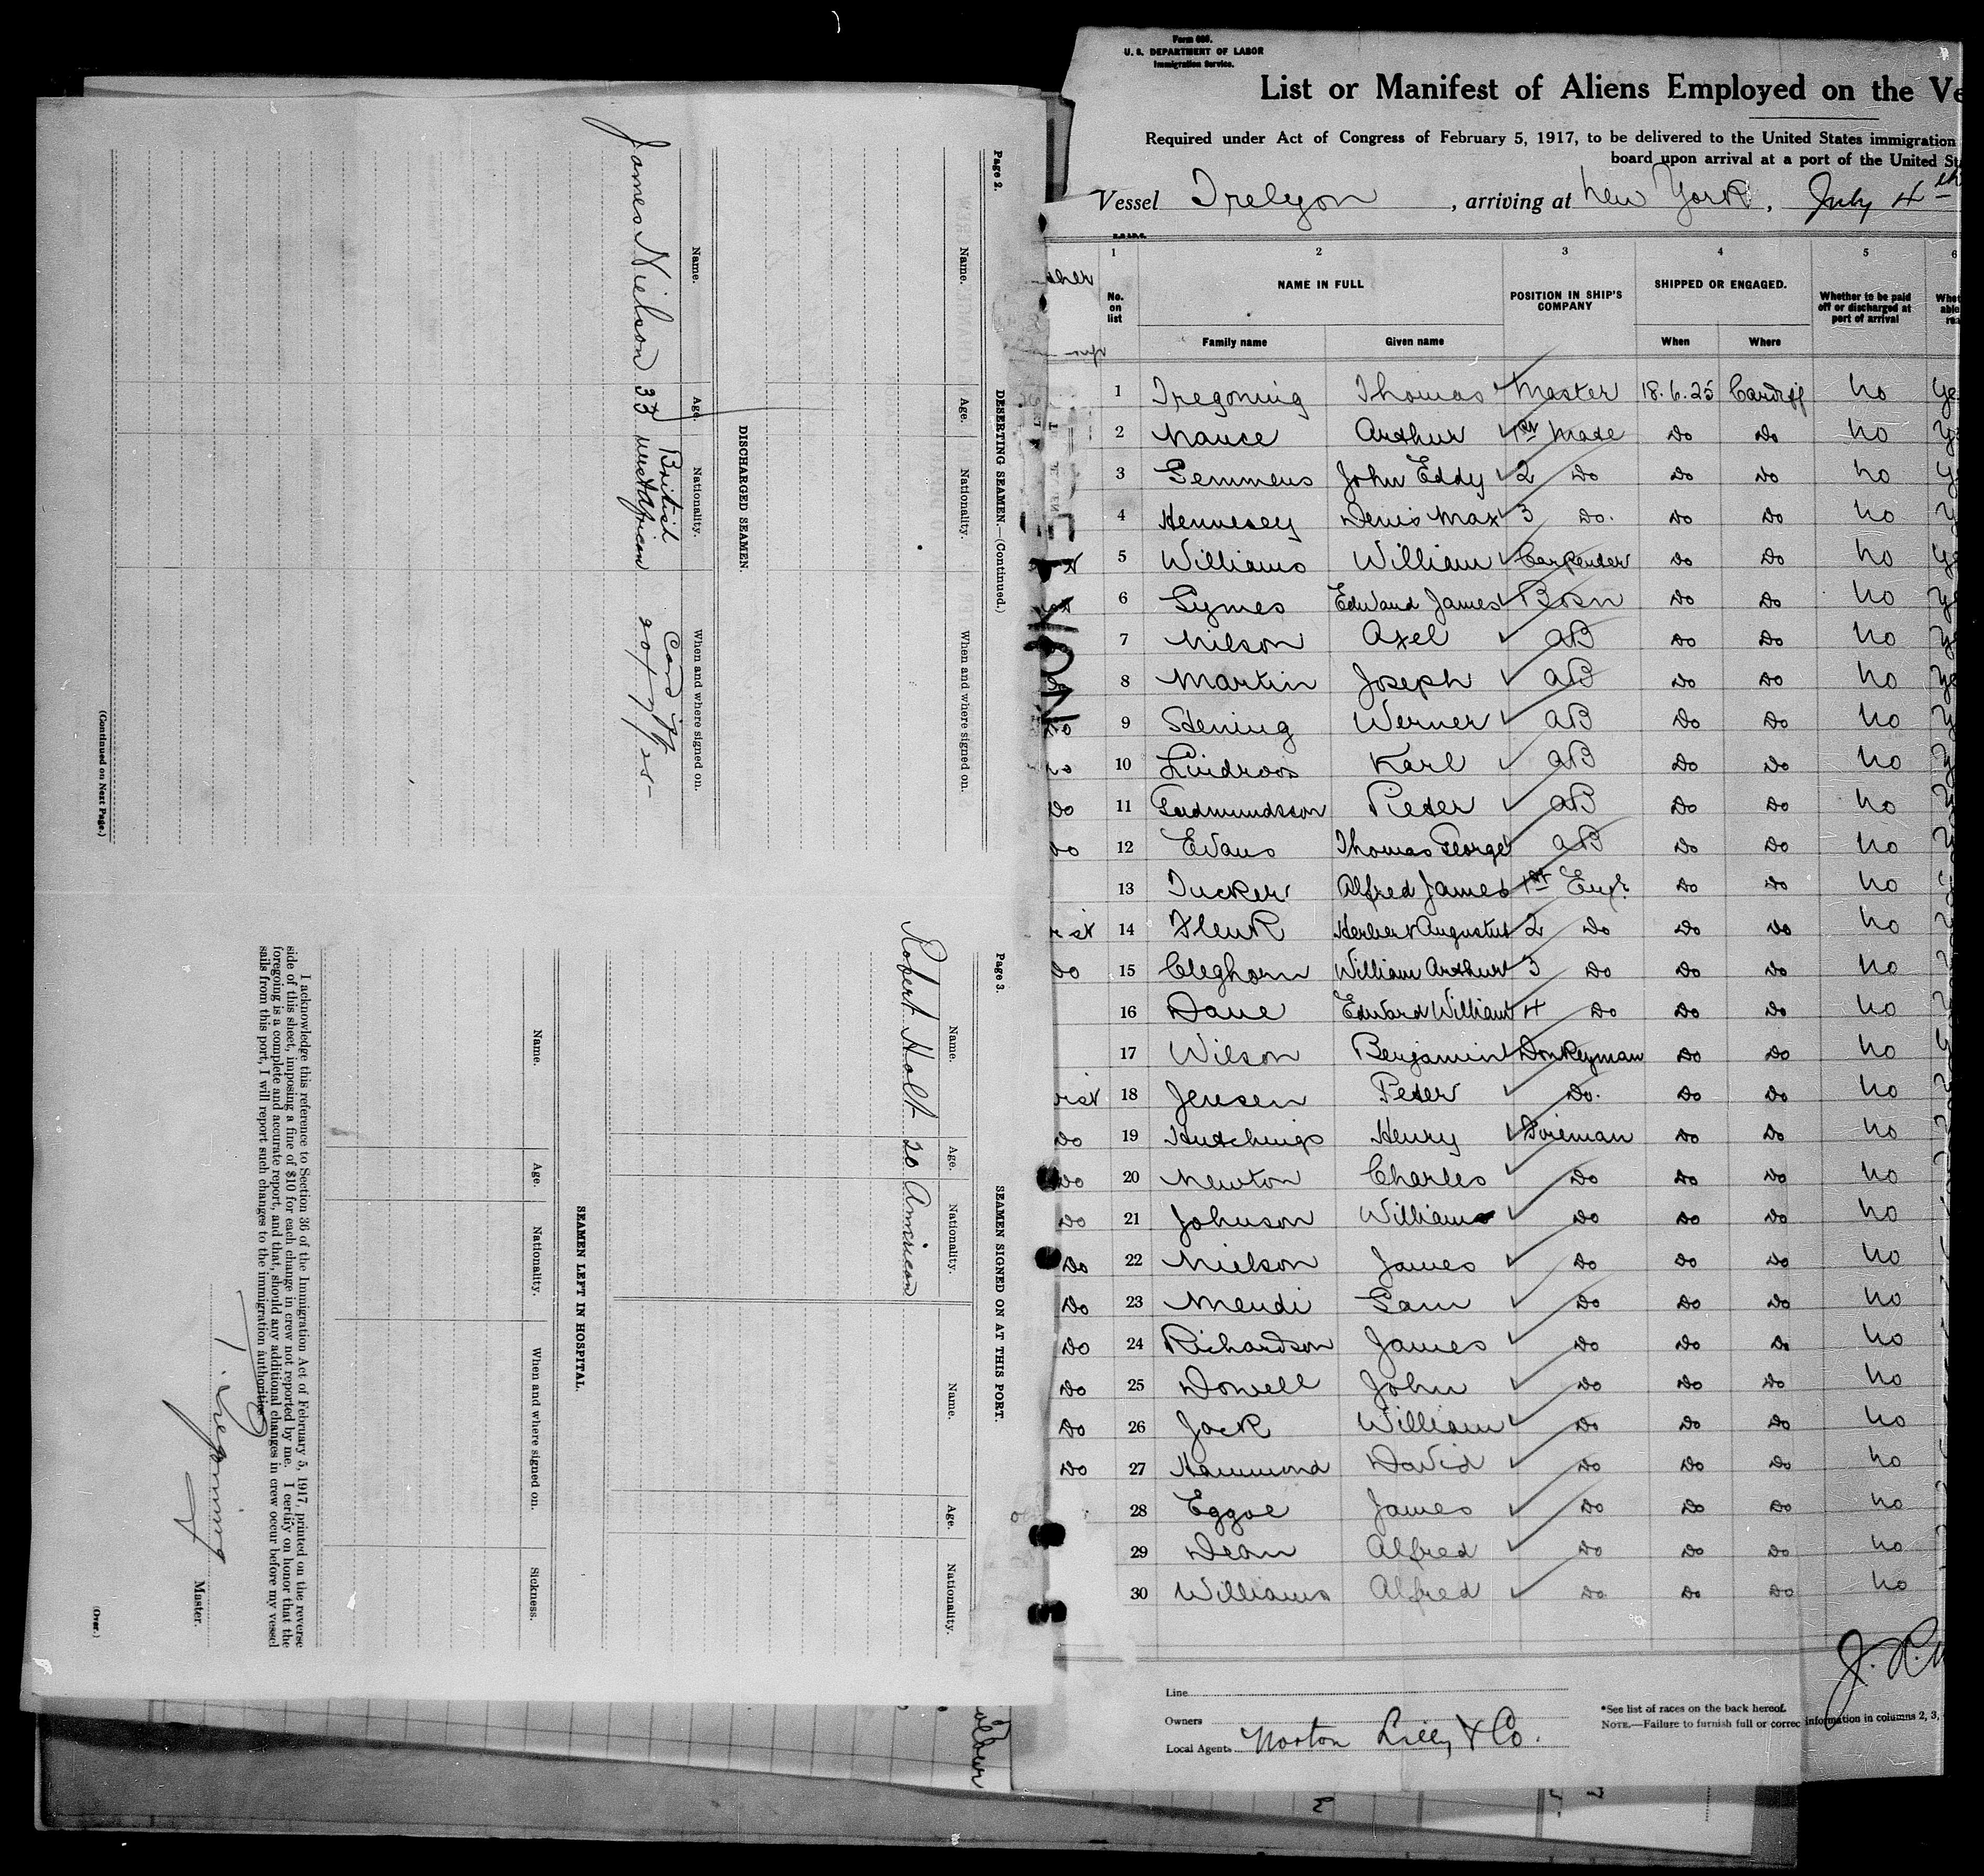 Page 2.
DESERTING SEAMEN.—(Continued.)
Name. Age. Nationality. When and where signed on.
DISCHARGED SEAMEN.
Name. Age. Nationality. When and where signed on.
British Cardiff
James Nielson 33 West African 20/7/25
(Continued on Next Page.)
Page 3.
SEAMEN SIGNED ON AT THIS PORT.
Name. Age. Nationality. Name. Age. Nationality.
Robert Holt 20 American
SEAMEN LEFT IN HOSPITAL.
Name. Age. Nationality. When and where signed on. Sickness.
I acknowledge this reference to Section 36 of the Immigration Act of February 5, 1917, printed on the reverse
side of this sheet, imposing a fine of $10 for each change in crew not reported by me. I certify on honor that the
foregoing is a complete and accurate report, and that, should any additional changes in crew occur before my vessel
sails from this port, I will report such changes to the immigration authorities.
T. Tregonning
Master.
(Over.)
Form 680.
U. S. DEPARTMENT OF LABOR
Immigration Service.
List or Manifest of Aliens Employed on the Ve
Required under Act of Congress of February 5, 1917, to be delivered to the United States immigration
board upon arrival at a port of the United St
Vessel Trelyon, arriving at New York, July 4th
1 2 3 4 5 6
No. on list NAME IN FULL POSITION IN SHIP'S COMPANY SHIPPED OR ENGAGED. Whether to be paid off or discharged at port of arrival
Family name Given name When Where
1 Tregoning Thomas Master 18.6.25 Cardiff No
2 Nance Arthur 1st Mate Do Do No
3 Semmens John Eddy 2 Do Do Do No
4 Hennesey Denis Max 3 Do. Do Do No
5 Williams William Carpenter Do Do No
6 Symes Edward James Bosn Do Do No
7 Nilson Axel AB Do Do No
8 Martin Joseph AB Do Do No
9 Stening Werner AB Do Do No
10 Lindroos Karl AB Do Do No
Do 11 Gudmundsson Pieter AB Do Do No
Do 12 Evans Thomas George AB Do Do No
13 Tucker Alfred James 1st Engr Do Do No
14 Flenk Herbert Augustus 2 Do Do Do No
Do 15 Cleghorn William Arthur 3 Do Do Do No
16 Dane Edward William 4 Do Do Do No
17 Wilson Benjamin Donkeyman Do Do No
18 Jensen Peter Do. Do Do No
Do 19 Hutchings Henry Fireman Do Do No
Do 20 Newton Charles Do Do Do No
Do 21 Johnson William Do Do Do No
Do 22 Nielson James Do Do Do No
Do 23 Mendi Sam Do Do Do No
Do 24 Richardson James Do Do Do No
Do 25 Dowell John Do Do Do No
Do 26 Jack William Do Do Do No
Do 27 Hammond David Do Do Do No
28 Eggoe James Do Do Do No
29 Dean Alfred Do Do Do No
30 Williams Alfred Do Do Do No
Line
Owners
Local Agents Norton Lilly & Co.
*See list of races on the back hereof.
NOTE.—Failure to furnish full or correc information in columns 2, 3,